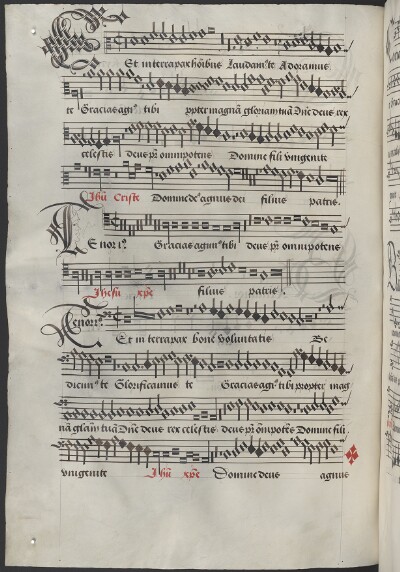 Et in terra pax hoĩbus Laudam⁹ te Adoramus
te Gracias agim⁹ tibi ppter magnã gloriam tuã Dñe deus rex
celestis deus pr̃ omnipotens Domine fili unigenite
Jhũ Criste Domine de⁹ agnus dei filius patris
Tenor 1⁹. Gracias agim⁹ tibi deus pr̃ omnipotens
Jhesu xp̃e filius patris.
Tenor 2⁹.
Et in terra pax bone voluntatis Be
dicim⁹ te Glorificamus te Gracias agim⁹ tibi propter mag
nã glam̃ tuã Dñe deus rex celestis deus pr̃ om̃ipotẽs Domine fili
unigenite Jhũ xp̃e Domine deus agnus